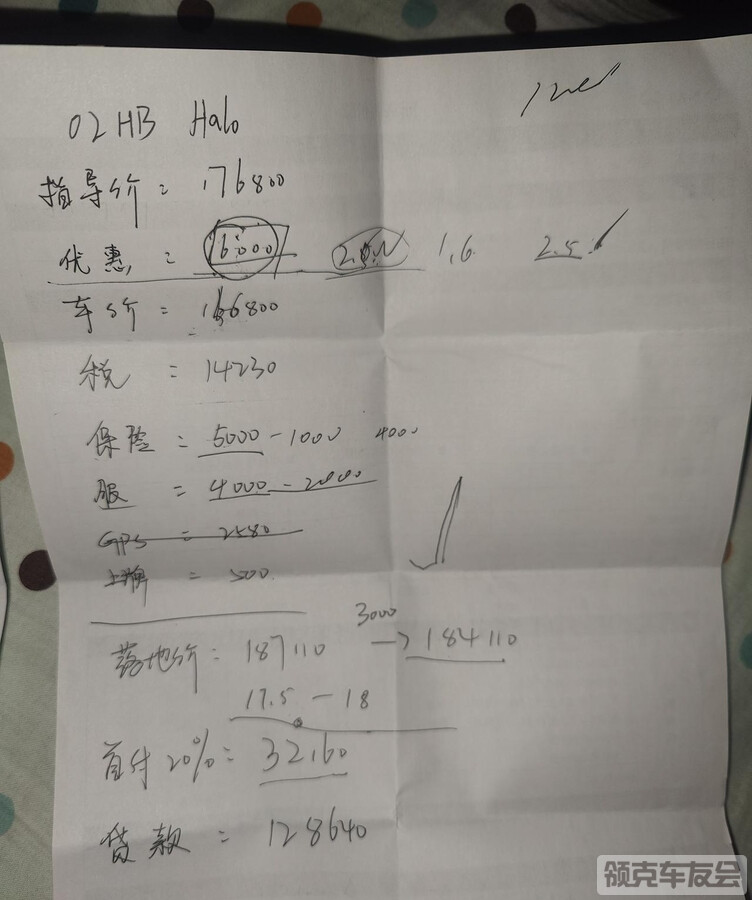 02 HB Halo
指导价: 176800
优惠: 16000 1.6 2.5
车价= 166800
税 = 14230
保险 = 5000 - 1000 4000
服 = 4000 - 2000
GPS = 2580
上牌 = 500
落地价: 187110 3000 → 184110
17.5 - 18
首付20%= 32160
贷款 = 128640
领克车友会